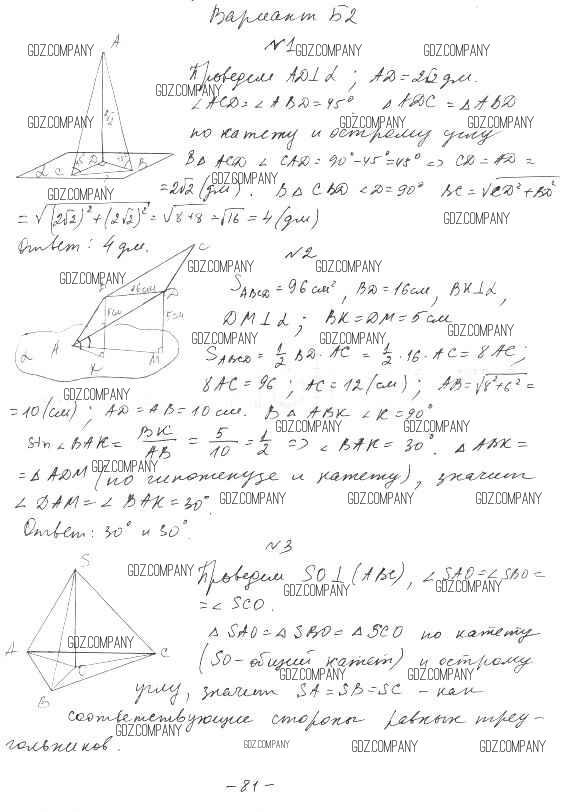 Вариант Б2
№1
Проведем AD⊥α ; AD=2√2 дм.
∠ACD=∠ABD=45° △ADC=△ABD
по катету и острому углу
В △ ACD ∠CAD=90°-45°=45° ⇒ CD=AD=
=2√2 (дм). В △ CBD ∠D=90° BC=√CD²+BD²
=√(2√2)²+(2√2)²=√8+8=√16=4 (дм)
Ответ: 4 дм.
№2
S_ABCD=96 см², BD=16 см, BK⊥α,
DM⊥α ; BK=DM=5 см
S_ABCD=1/2 BD·AC=1/2·16·AC=8AC;
8AC=96 ; AC=12 (см) ; AB=√8²+6²=
=10 (см) ; AD=AB=10 см. В △ ABK ∠K=90°
sin∠BAK=BK/AB=5/10=1/2 ⇒ ∠BAK=30°. △ABK=
=△ADM (по гипотенузе и катету), значит
∠DAM=∠BAK=30°
Ответ: 30° и 30°.
№3
Проведем SO⊥(ABC), ∠SAO=∠SBO=
=∠SCO.
△SAO=△SBO=△SCO по катету
(SO-общий катет) и острому
углу, значит SA=SB=SC – как
соответствующие стороны равных треу-
гольников.
-81-
GDZ.COMPANY